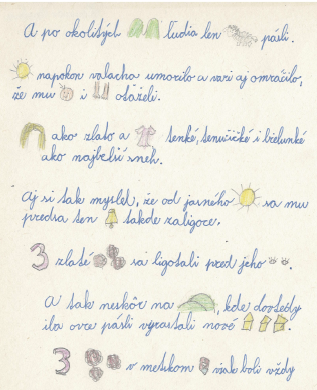 A po okolitých ľudia len pásli.
napokon valacha umorilo a vari aj omráčilo,
že mu i oťaželi.
ako zlato a tenké, tenučičké i bielunké
ako najbelší sneh.
Aj si tak myslel, že od jasného sa mu
predsa ten takde zaligoce.
3 zlaté sa ligotali pred jeho
A tak neskôr na , kde dovtedy
iba ovce pásli vyrastali nové
3 v mestskom však boli vždy